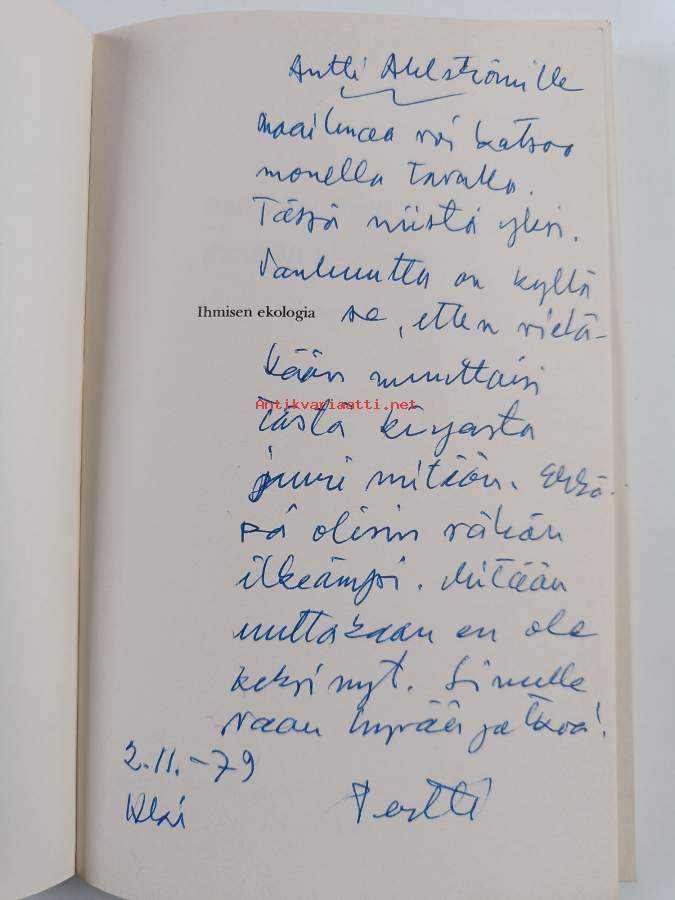 Antti Ahlströmille
maailmaa voi katsoa
monella tavalla.
Tässä niistä yksi.
Vanhuutta on kyllä
Ihmisen ekologia
se, etten vielä-
kään muuttaisi
Antikvariaatti.net
tästä kirjasta
juuri mitään. Ehkä
olisin vähän
ilkeämpi. Mitään
muutakaan en ole
keksinyt. Sinulle
vaan hyvää jatkoa!
2.11.-79
Hki Pertti